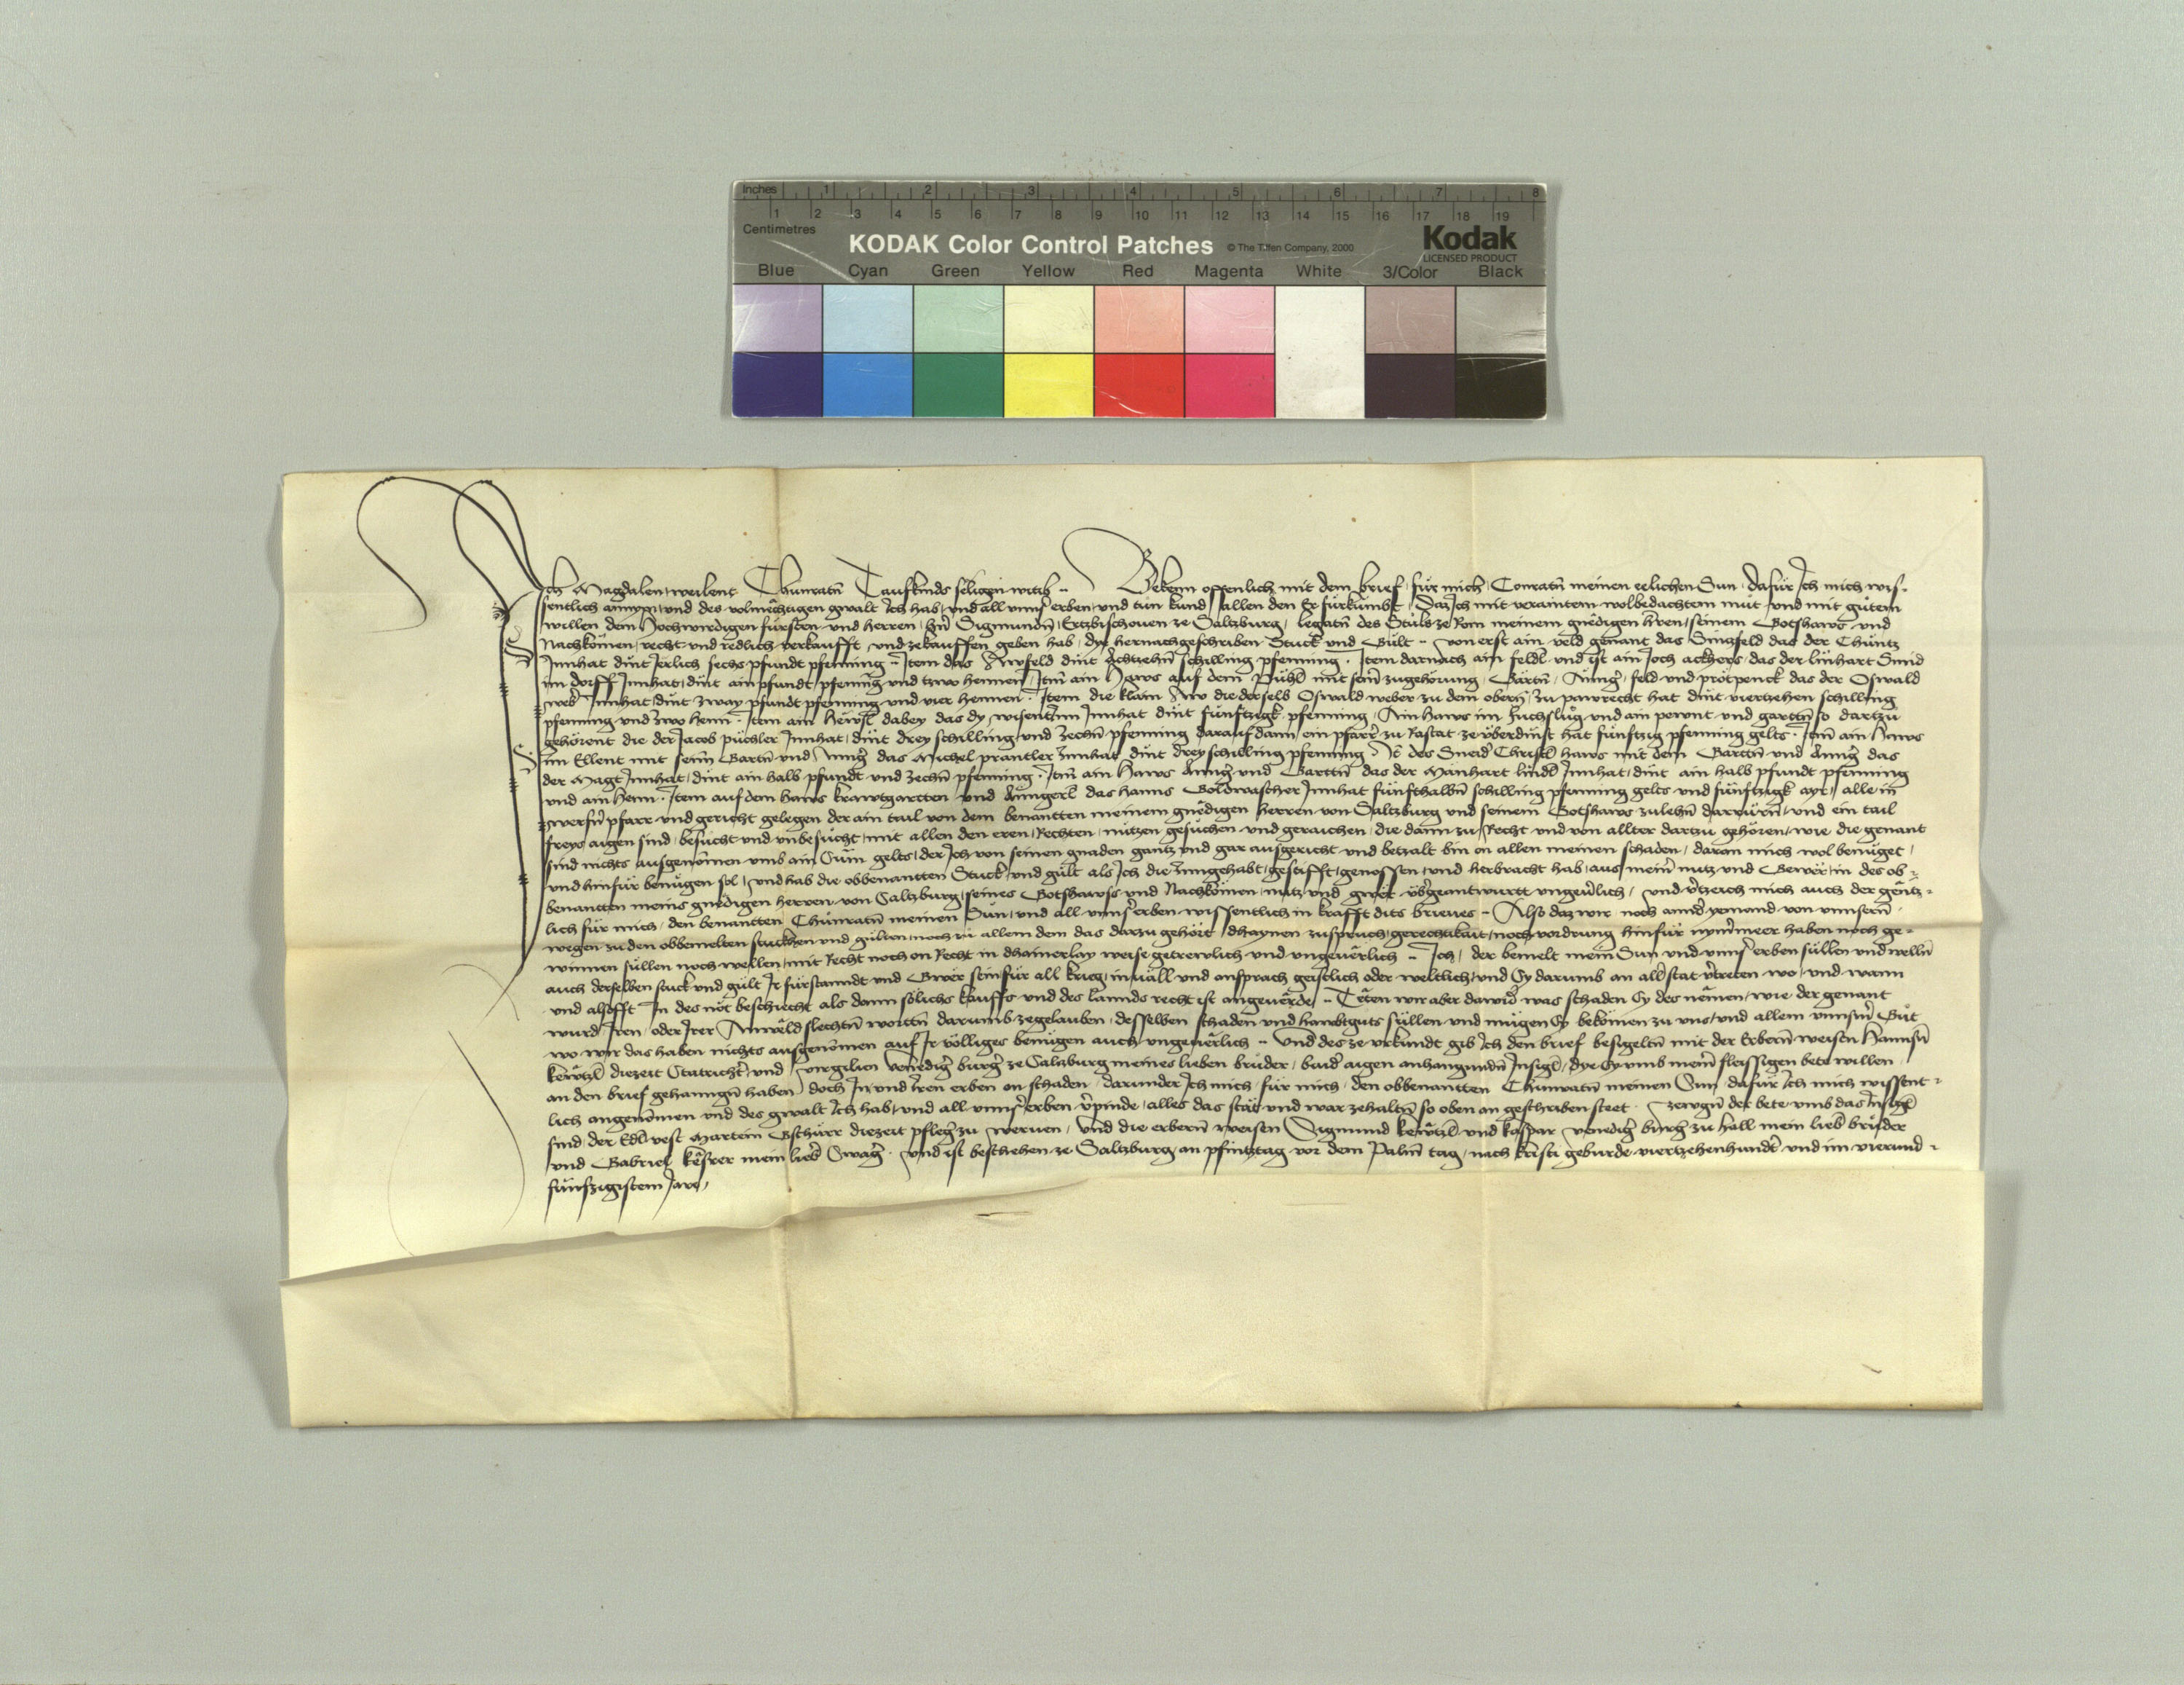 Inches 1 2 3 4 5 6 7 8
1 2 3 4 5 6 7 8 9 10 11 12 13 14 15 16 17 18 19
Centimetres
KODAK Color Control Patches © The Tiffen Company, 2000 Kodak
LICENSED PRODUCT
Blue Cyan Green Yellow Red Magenta White 3/Color Black
Ich Magdalen weilent Chunratn Taufkinds seligen witib Bekenn offenlich mit dem brief fur mich Conratn meinen elichen Sun dafur Ich mich wis-
sentlich annym und des volmechtigen gwalt Ich hab und all unns erben und tun kund allen den Er furkumbt Daz Ich mit veraintem wolbedachtem mut und mit gutem
willen dem Hochwirdigen fursten und herren hern Sigmundn Ertzbischouen ze Saltzburg legatn des Stuls ze Rom meinem gnedigen herren seinem Gotshaws und
Nachkomen recht und redlich verkaufft und zekauffen geben hab dye hernachgeschriben Stuck und Gult von erst ain veld genant das Sinzfeld das der Chuntz
Innhat dint Jerlich sechs pfundt pfenning Item das Awfeld dint Achtzehn schilling pfenning Item darnach ain feldl und ist ain Joch ackhers das der linhart Smid
im dorff Innhat dint ain pfundt pfenning und tzwo hennen Itm ain Haws auf dem Puhl mit sein zugehorung Gartn Annger feld und protpenck das der Oswald
web Innhat dint zway pfundt pfenning und vier hennen Item die klain Aw die derselb Oswald weber zu dem obern zu pawrecht hat dint viertzehen schilling
pfenning und zwo henn Item ain hewsl dabey das dy wisentinn Innhat dint funftzigk pfenning Ain haws im und ain pewnt und garttn so dartzu
gehorent die der Jacob puchler Innhat dint drey schilling und zechn pfenning darauf dann ein pfarrer zu Rastat ze uberdinst hat funftzig pfenning gelts Itm ain Haws
im Ellent mit seim Gartn und Annger das Michel prantler Innhat dint drey schilling pfenning It des Sneider Christl haws mit dem Garttn und Annger das
der Magt Innhat dint ain halb pfundt und zechn pfenning Itm ain Haws Annger und Garttn das der Manhart lindl Innhat dint ain halb pfundt pfenning
und ain henn Item auf dem haws krawtgartten und Anngerl das hanns Goldwascher Innhat funfthalbn schilling pfenning gelts und funftzigk ayr alle in
zwerfn pfarr und gericht gelegen der ain tail von dem benantten meinem gnedigen herren von Saltzburg und seinem Gotshaws zulehn darrurn und ein tail
freys aigen sind besucht und unbesucht mit allen den eren Rechten nutzen gesuchen und geraichen die dann zu Recht und von allter dartzu gehoren wie die genant
sind nichts ausgenomen umb ain Sum gelts der Ich von seinen gnaden gantz und gar ausgericht und betzalt bin on allen meinen schaden daran mich wol benuget
und hinfur benugen sol und hab die obbenantten Stuck und gult als Ich die Inngehabt gestifft genossen und herbracht hab aus mein nutz und Gewer in des ob-
benantten meins gnedigen herren von Saltzburg seines Gotshawss und Nachkomen nutz und gwer ubgeantwurtt ungeverlich und vertzeich mich auch der gentz-
lich fur mich den benantten Chunratn meinen Sun und all unns erben wissentlich in krafft dits brieues Also daz wir noch annder yemand von unnsern
wegen zu den obbemelten stuckhen und gulten noch zu allem dem das darzu gehort dhaynen zuspruch gerechtikait noch vordrung hinfur nymmeer haben noch ge-
winnen sullen noch wellen mit Recht noch on Recht in dhainerlay weise getrewlich und ungeuerlich Ich der bemelt mein Sun und unns erben sullen und welln
auch derselben stuck und gult Ir furstanndt und Gwer sein fur all krieg inuall und ansprach geistlich oder weltlich und Sy darumb an aller stat vertreten wo und wann
und alsofft In des not beschiecht als dann solichs kauffs und des lannds recht ist angeuerde Teten wir aber dawider was schaden Sy des nemen wie der genant
wurd Iren oder Irer Anweld slechtn wortn darumb zegelauben desselben schaden und hawbtguts sullen und mugen Sy bekomen zu uns und allem unnsm Gut
wo wir das haben nichts ausgenomen auf Ir volliges benugen auch ungeuerlich Und des ze urkundt gib Ich den brief besigeltn mit der Erbern weisen Hannsn
kewtzl diezeit Statrichter und virgilien venediger burger ze Saltzburg meines lieben bruder baider aigen anhangundn Insigl dye Sy umb mein fleissigen bete willen
an den brief gehanngn haben doch In und Iren erben on schaden darunder Ich mich fur mich den obbenantten Chunratn meinen Sun dafur Ich mich wissent-
lich angenomen und des gwalt Ich hab und all unns erben verpinde alles das stat und war zehaltn so oben an geschriben steet zewgn der bete umb das Insigl
sind der Edl vest Martein Gschurr diezeit pfleger zu werven und die erbern weisen Sigmund kewtzl und kaspar venediger burger zu hall mein lieb bruder
und Gabriel mein lieber Swager und ist beschehen ze Saltzburg an pfintztag vor dem Palm tag nach kristi geburde viertzehenhundert und im vierund-
funfzigistem Jare